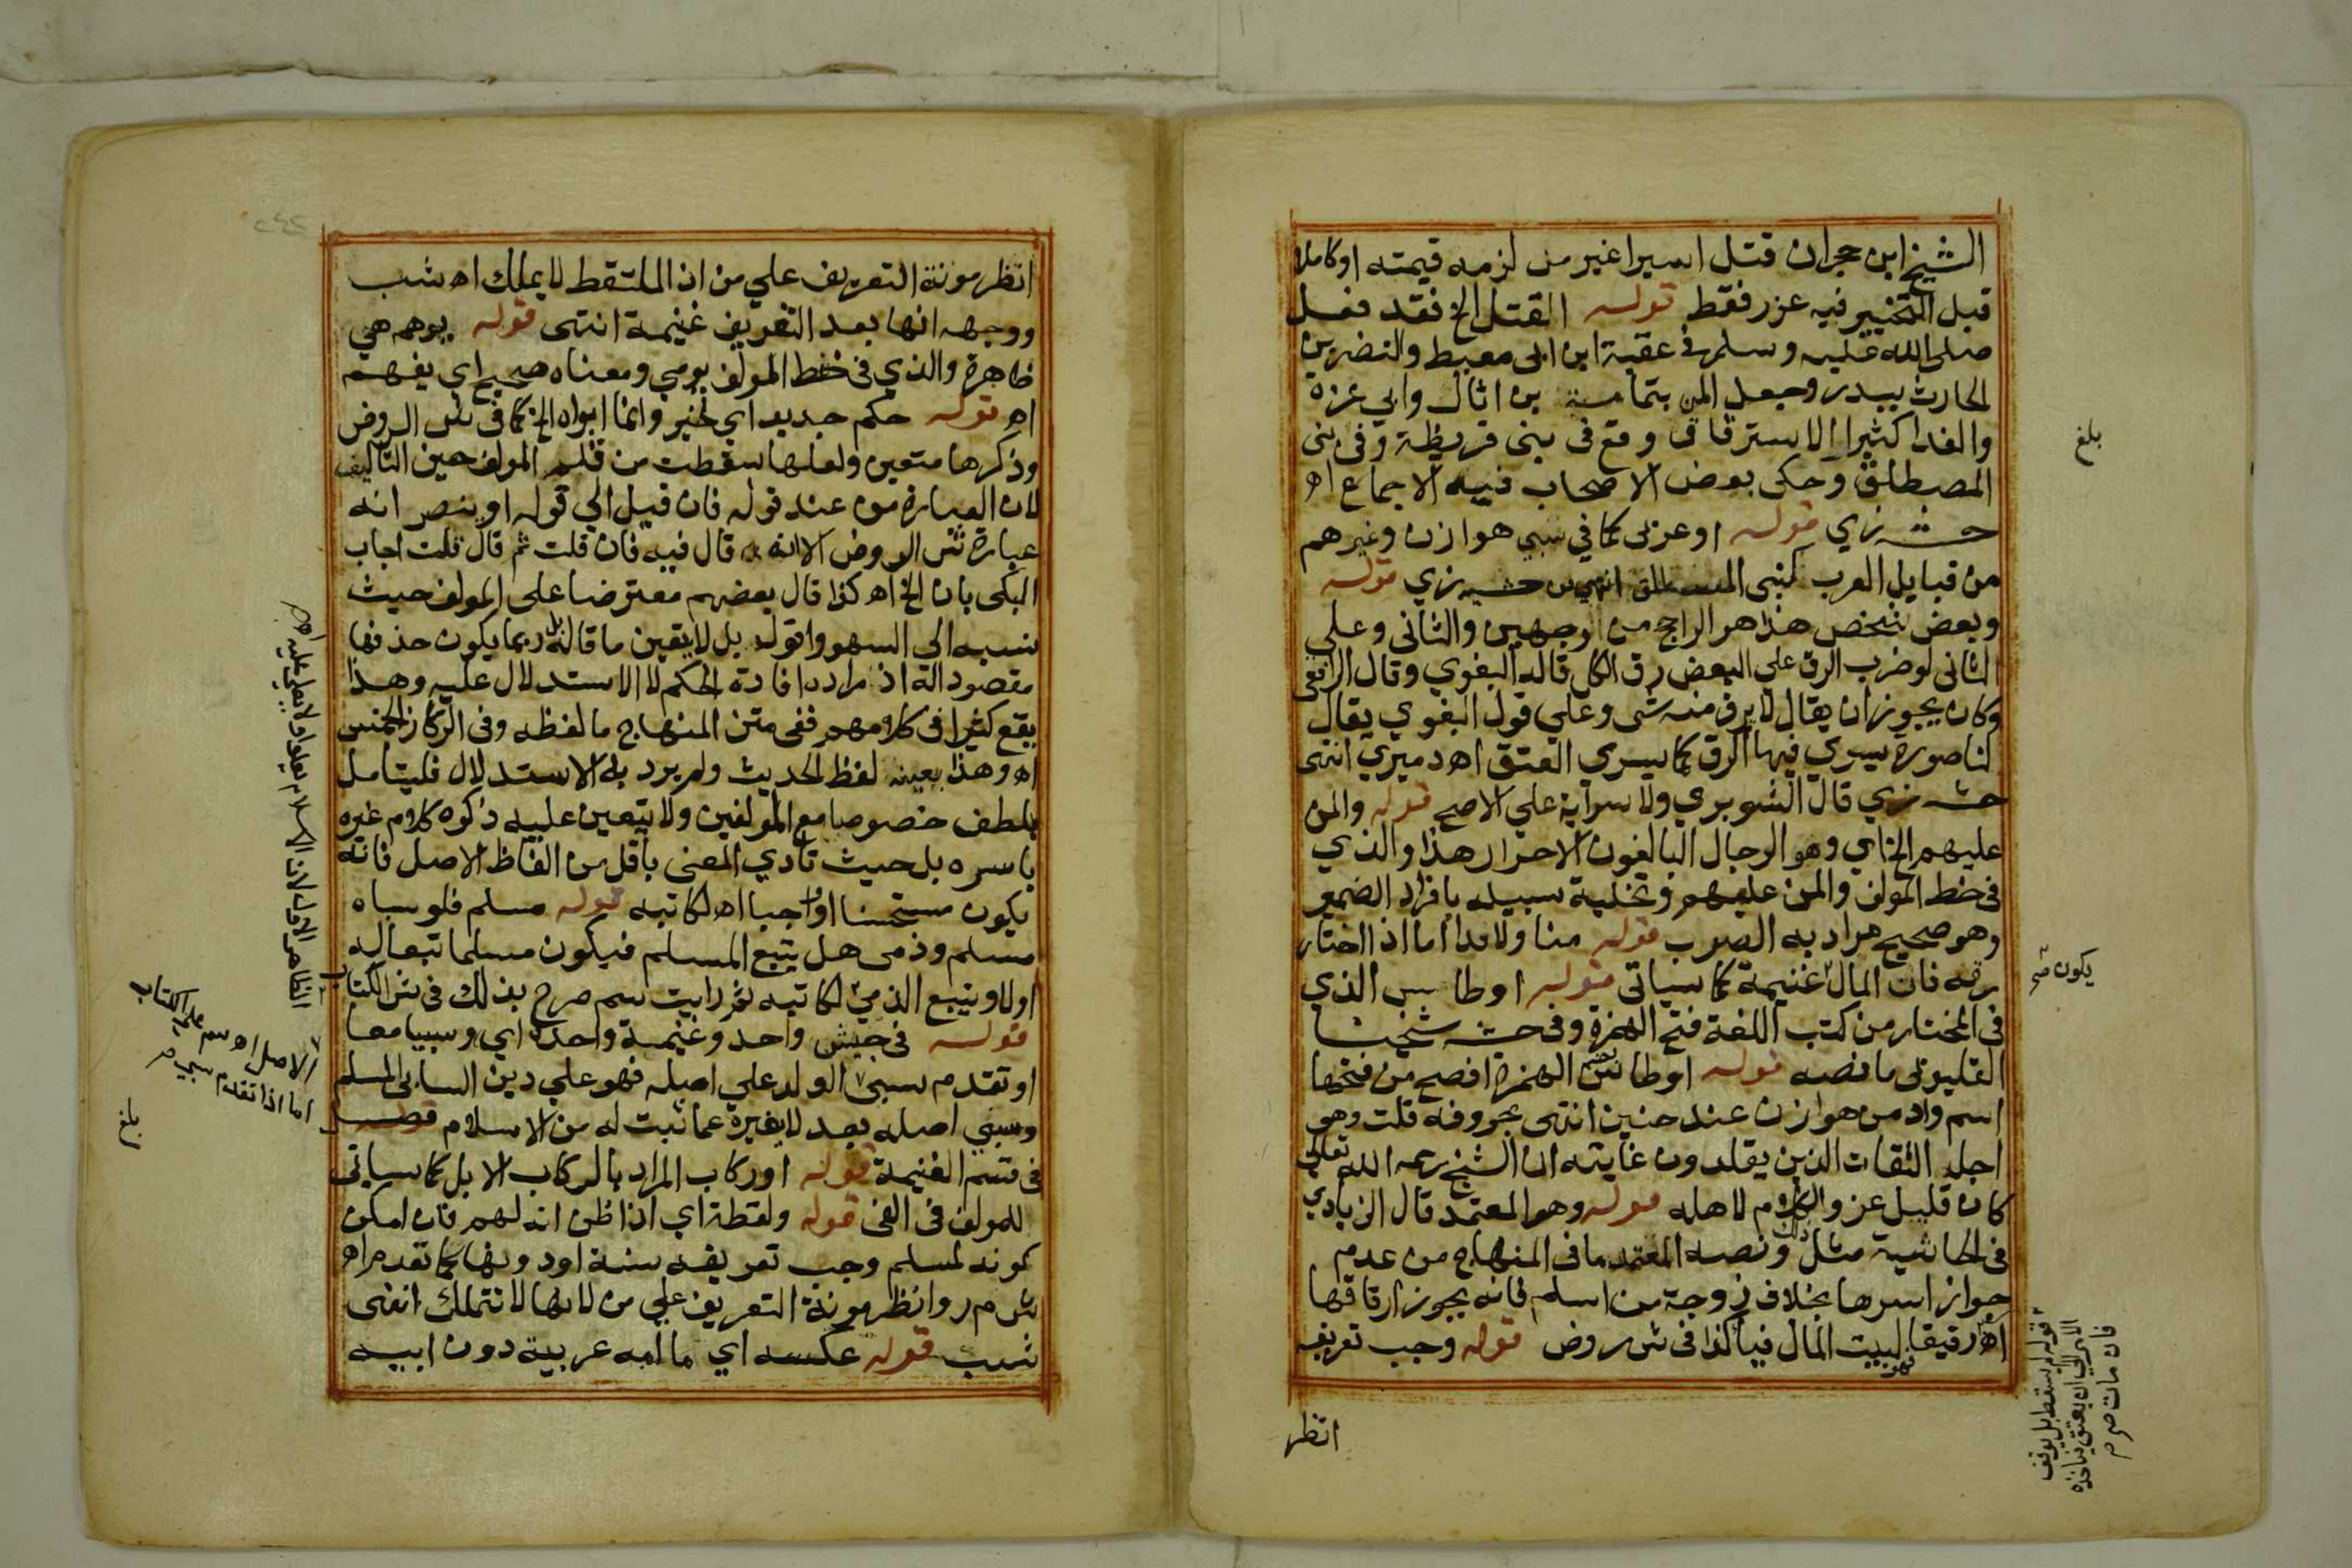 الشيخ ابن حجران قتل اسيرا غير من لزمه قيمته اوكاملا
قبل التخيير فيه عزر فقط قوله القتل الخ فقد فعل
صلى الله عليه وسلم في عقبة ابن ابي معيط والنضر بن
الحارث ببدر وجعل المن بثمامة بن اثال وابي عزه
والفدا كثيرا الاسترقاق وقع في بني قريظة وفي بني
المصطلق وحكى بعض الاصحاب فيه الاجماع اه
حش زي قوله اوعزى كما في سبي هوازن وغيرهم
من قبايل العرب كبني المصطلق انتهى حش زي قوله
وبعض شخص هذا هو الراجح من الوجهين والثاني وعلى
الثاني لوضرب الرق على البعض رق الكل قاله البغوي وقال الرافعي
وكان يجوز ان يقال لا يرق منه شي وعلى قول البغوي يقال
لنا صورة يسري فيها الرق كما يسري العتق اه دميري انتهى
حش زي قال الشوبري ولا سراية علي الاصح قوله والمن
عليهم الخ اي وهو الرجال البالغون الاحرار هذا والذي
في خط المولف والمن عليهم وتخلية سبيله بافراد الضمير
وهو صحيح مراد به قوله منا ولا فدا اما اذا اختار
رقه فان المال غنيمة كما سياتي قوله اوطاس الذي
في المختار من كتب اللغة فتح الهمزة وفي حش شيخنا
القليوبي ما نصه قوله اوطاس بضم الهمزة افصح من فتحها
اسم واد من هوازن عند حنين انتهى بحروفه قلت وهو
اجل الثقات الذين يقلدون غايته ان الشيخ رحمه الله تعالى
كان قليل عزو الكلام لاهله قوله وهو المعتمد قال الزيادي
في الحاشية مثل ذلك ونصه المعتمد ما في المنهاج من عدم
جواز اسرها بخلاف زوجة من اسلم فانه يجوز ارقاقها
اه قوله رقيقا فهو لبيت المال فيا كذا في ش روض قوله وجب تعريفه
انظر
بلغ
يكون صح
قوله لم يسقط بل يوقف
الامر الي ان يعتق فياخذه
فان مات صح م
انظر مونة التعريف علي من اذ الملتقط لا يملك اه شب
ووجهه انها بعد التعريف غنيمة انتهى قوله يوهم هي
ظاهرة والذي في خط المولف يومي ومعناه صحيح اي يفهم
اه قوله حكم جديد اي لخبر وانما ابواه الخ كما في ش الروض
وذكرها متعين ولعلها سقطت من قلم المولف حين التاليف
لان العبارة من عند قوله فان قيل الي قوله او ينصر انه
عبارة ش الروض الا انه قال فيه فان قلت ثم قال قلت اجاب
البكى بان الخ اه كذا قال بعضهم معترضا على المولف حيث
نسبه الي السهو واقول بل لا يتعين ما قاله بل ربما يكون حذفها
مقصودا له اذ مراده افادة الحكم لا الاستدلال عليه وهذا
يقع كثيرا في كلامهم ففي متن المنهاج ما لفظه وفي الركاز الخمس
اه وهذا بعينه لفظ الحديث ولم يرد به الاستدلال فليتامل
بلطف خصوصا مع المولفين ولا يتعين عليه ذكره كلام غيره
باسره بل حيث تادي المعنى باقل من الفاظ الاصل فانه
يكون مستحسنا او واجبا اه لكاتبه قوله مسلم فلو سباه
مسلم وذمي هل يتبع المسلم فيكون مسلما تبعا له
اولا ويتبع الذمي لكاتبه ثم رايت سم صرح بذلك في ش الكتاب
قوله في جيش واحد وغنيمة واحدة اي وسبيا معا
او تقدم سبي الولد علي اصله فهو علي دين السابي المسلم
وسبي اصله بعد لا يغيره عما ثبت له من الاسلام فصل
في قسم الغنيمة قوله او ركاب المراد بالركاب الابل كما سياتي
للمولف في الفى قوله ولقطة اي اذا ظن انه لهم فان امكن
كونه لمسلم وجب تعريفه سنة او دونها كما تقدم اه
ش م ر وانظر مونة التعريف علي من لانها لا تتملك انتهى
شب قوله عكسه اي ما امه عربية دون ابيه
الاصل اه سم على الكتاب
اما اذا تقدم سبي
بلغ